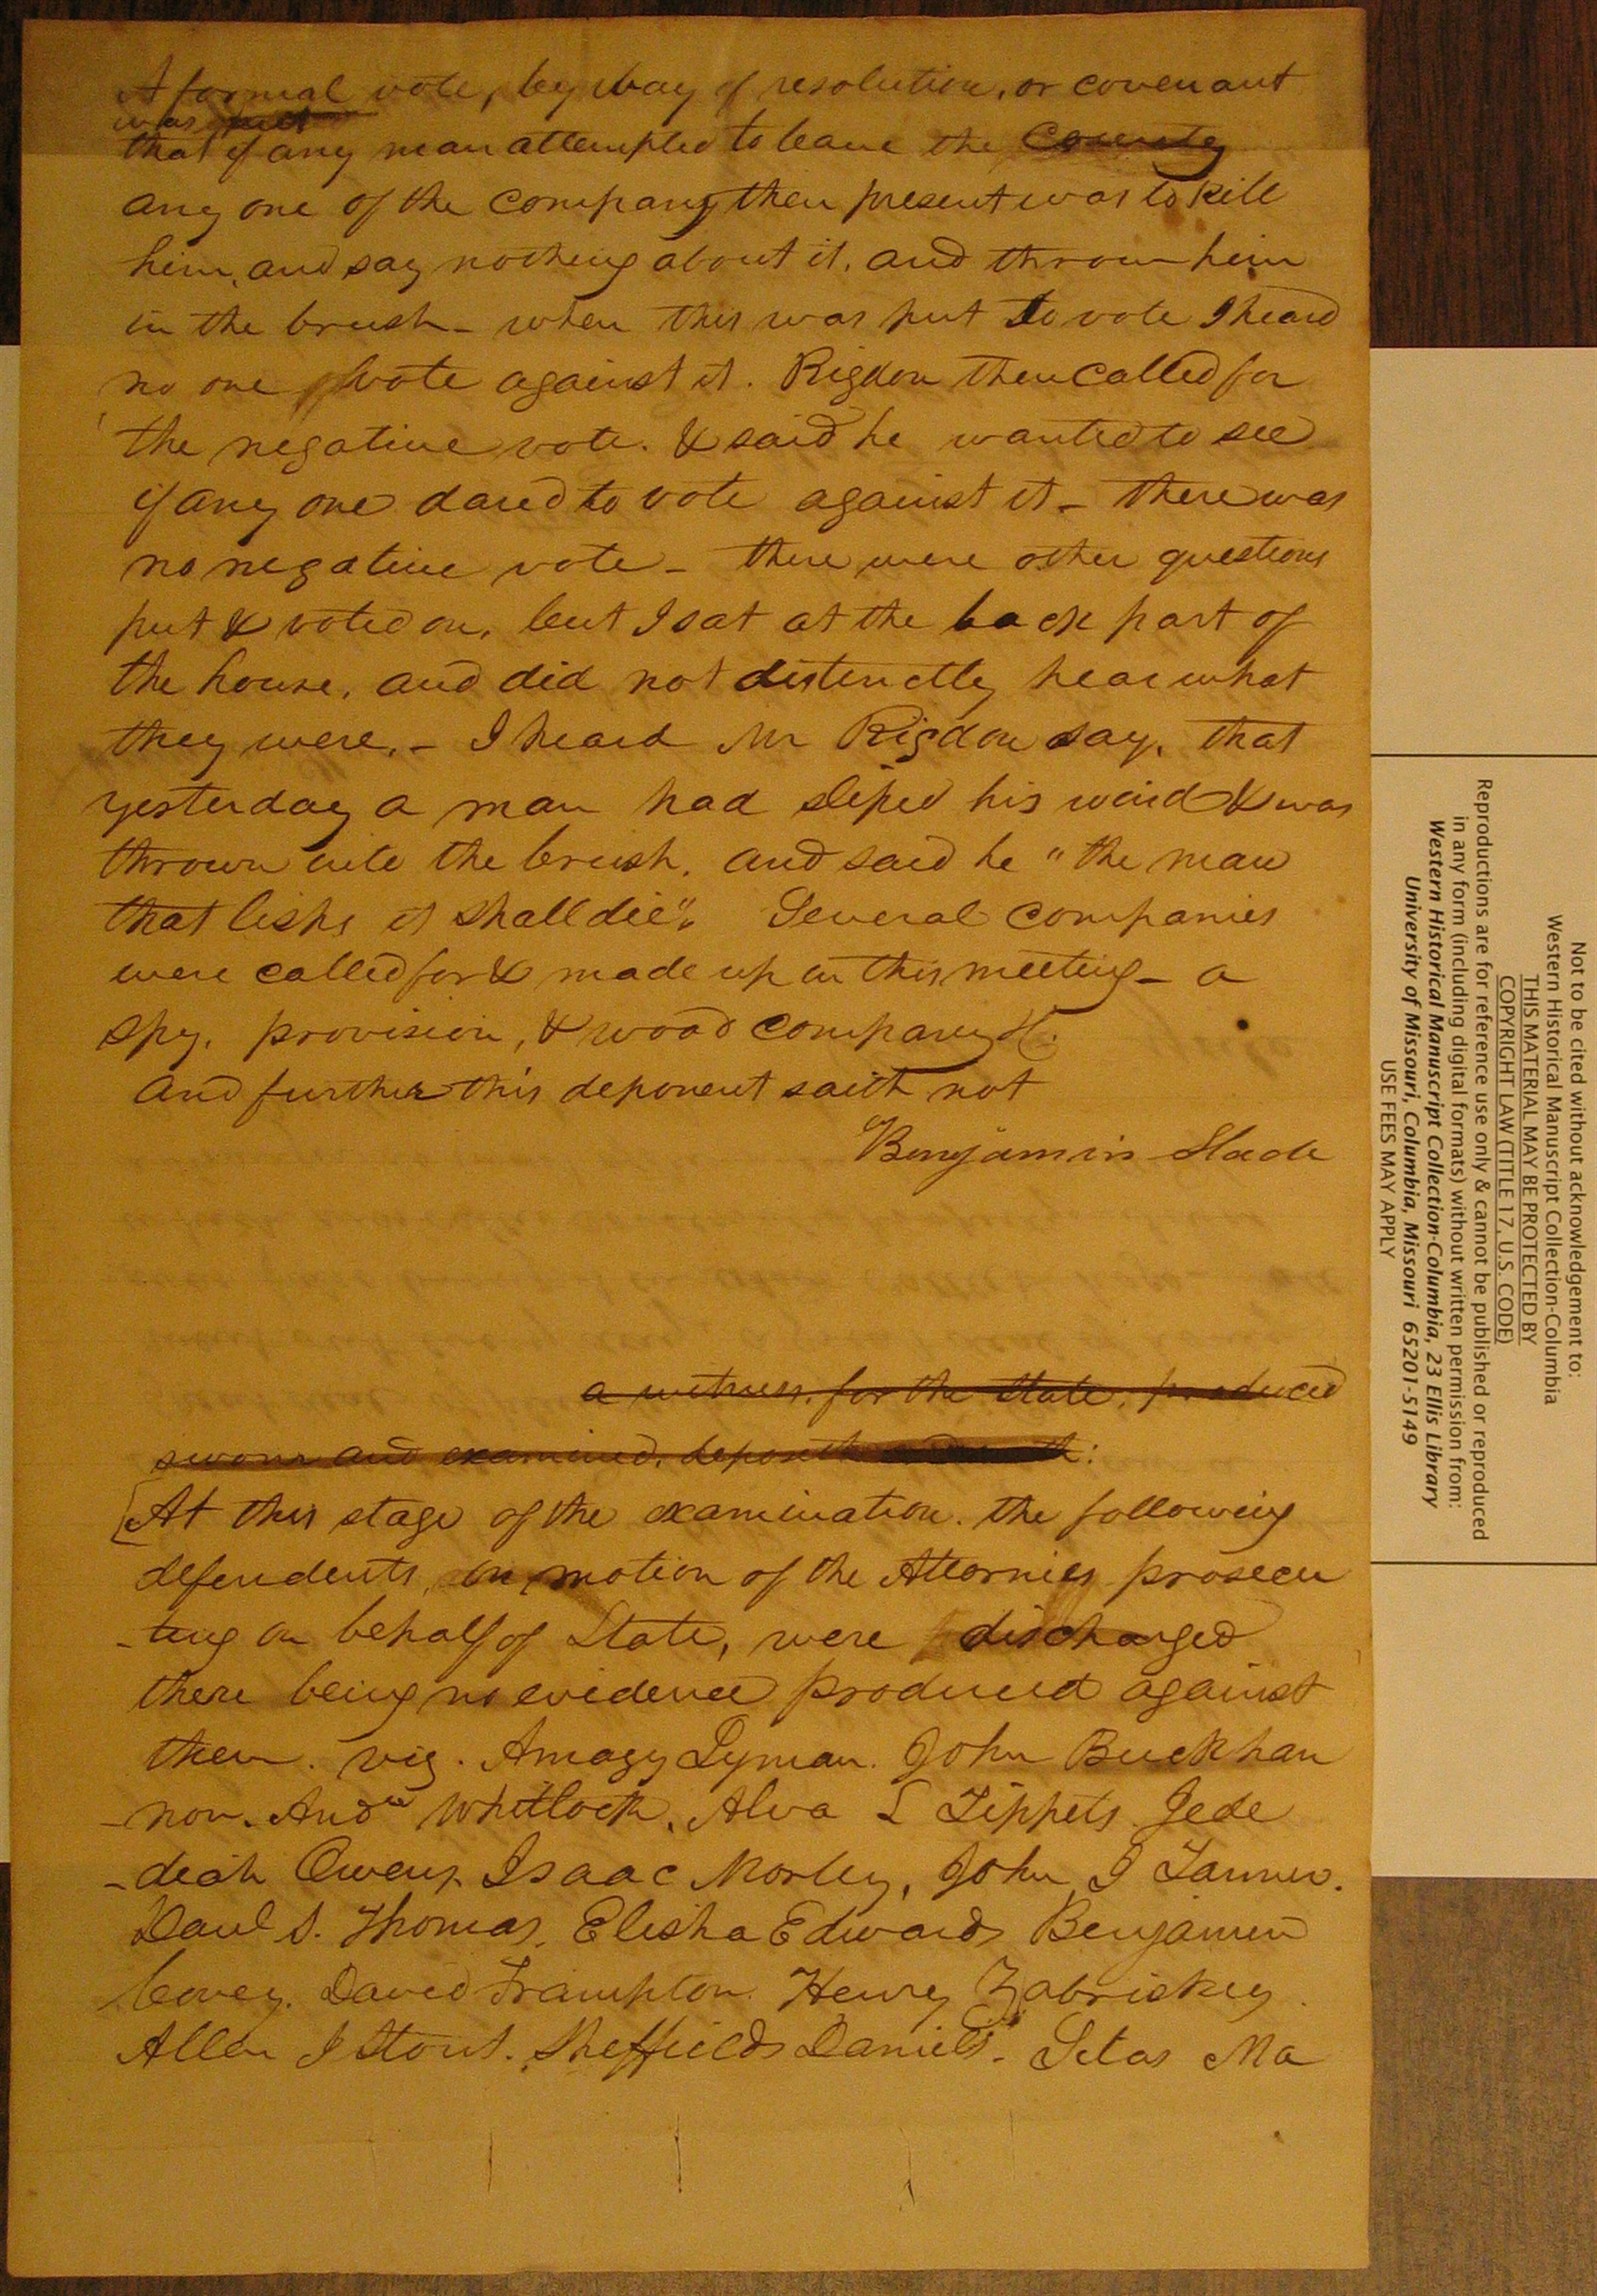 A formal vote, by way of resolution, or covenant
was put
that if any man attempted to leave the County
any one of the company then present was to kill
him, and say nothing about it, and throw him
in the brush - when this was put to vote I heard
no one vote against it. Rigdon then called for
the negative vote. & said he wanted to see
if any one dared to vote against it - there was
no negative vote - there were other questions
put & voted on, but I sat at the back part of
the house, and did not distinctly hear what
they were. - I heard Mr Rigdon say, that
yesterday a man had sliped his wind & was
thrown into the brush, and said he "the man
that lisps it shall die". Several companies
were called for & made up in this meeting - a
spy, provision, & wood company &c.
And further this deponent saith not
Benjamin Slade
a witness, for the State, produced
sworn and examined, deposeth :
[At this stage of the examination. the following
defendents, on motion of the Attornies prosecu
-ting on behalf of State, were discharged
there being no evidence produced against
them. viz. Amazy Lyman. John Buckhan
-non. Andw Whitlock, Alva L Tippets Jede
-deah Owens, Isaac Morley, John J Tanner.
Danl S. Thomas, Elisha Edwards Benjamin
Covey. David Frampton. Henry Zabriskey.
Allen J Stout. Sheffield Daniels. Silas Ma
Not to be cited without acknowledgement to:
Western Historical Manuscript Collection-Columbia
THIS MATERIAL MAY BE PROTECTED BY
COPYRIGHT LAW (TITLE 17, U.S. CODE)
Reproductions are for reference use only & cannot be published or reproduced
in any form (including digital formats) without written permission from:
Western Historical Manuscript Collection-Columbia, 23 Ellis Library
University of Missouri, Columbia, Missouri 65201-5149
USE FEES MAY APPLY